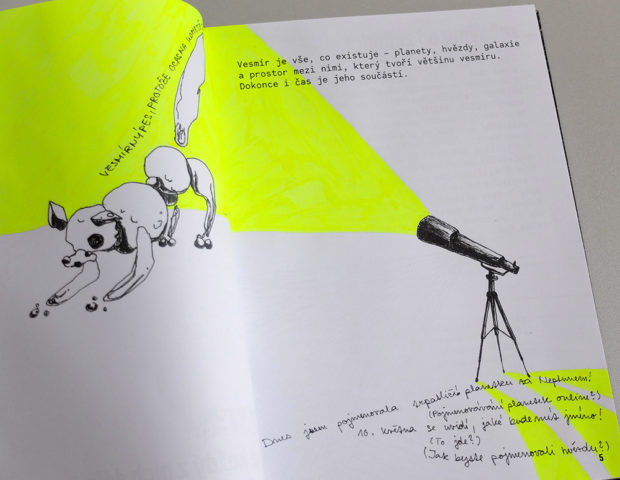 VESMÍRNÝ PES, PROTOŽE OCAS NA
Vesmír je vše, co existuje – planety, hvězdy, galaxie
a prostor mezi nimi, který tvoří většinu vesmíru.
Dokonce i čas je jeho součástí.
Dnes jsem pojmenovala trpasličí planetku za Neptunem!
(Pojmenovávání planetek online?)
10. května se uvidí, jaké bude mít jméno!
(To jde?)
(Jak byste pojmenovali hvězdu?)
5